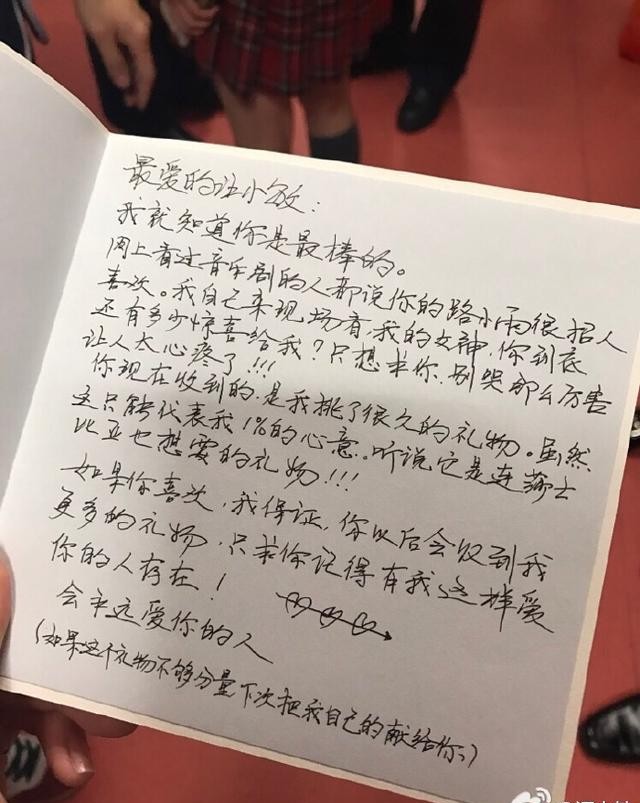 最爱的汪小敏：
我就知道你是最棒的。
网上看过音乐剧的人都说你的路小雨很招人
喜欢。我自己来现场看，我的女神，你到底
还有多少惊喜给我？只想求你，别哭那么厉害
让人太心疼了！！！
你现在收到的，是我挑了很久的礼物。虽然
这只能代表我1%的心意。听说它是连莎士
比亚也想要的礼物！！！
如果你喜欢，我保证，你以后会收到我
更多的礼物，只求你记得有我这样爱
你的人存在！
会永远爱你的人
（如果这个礼物不够分量，下次把我自己的献给你；）